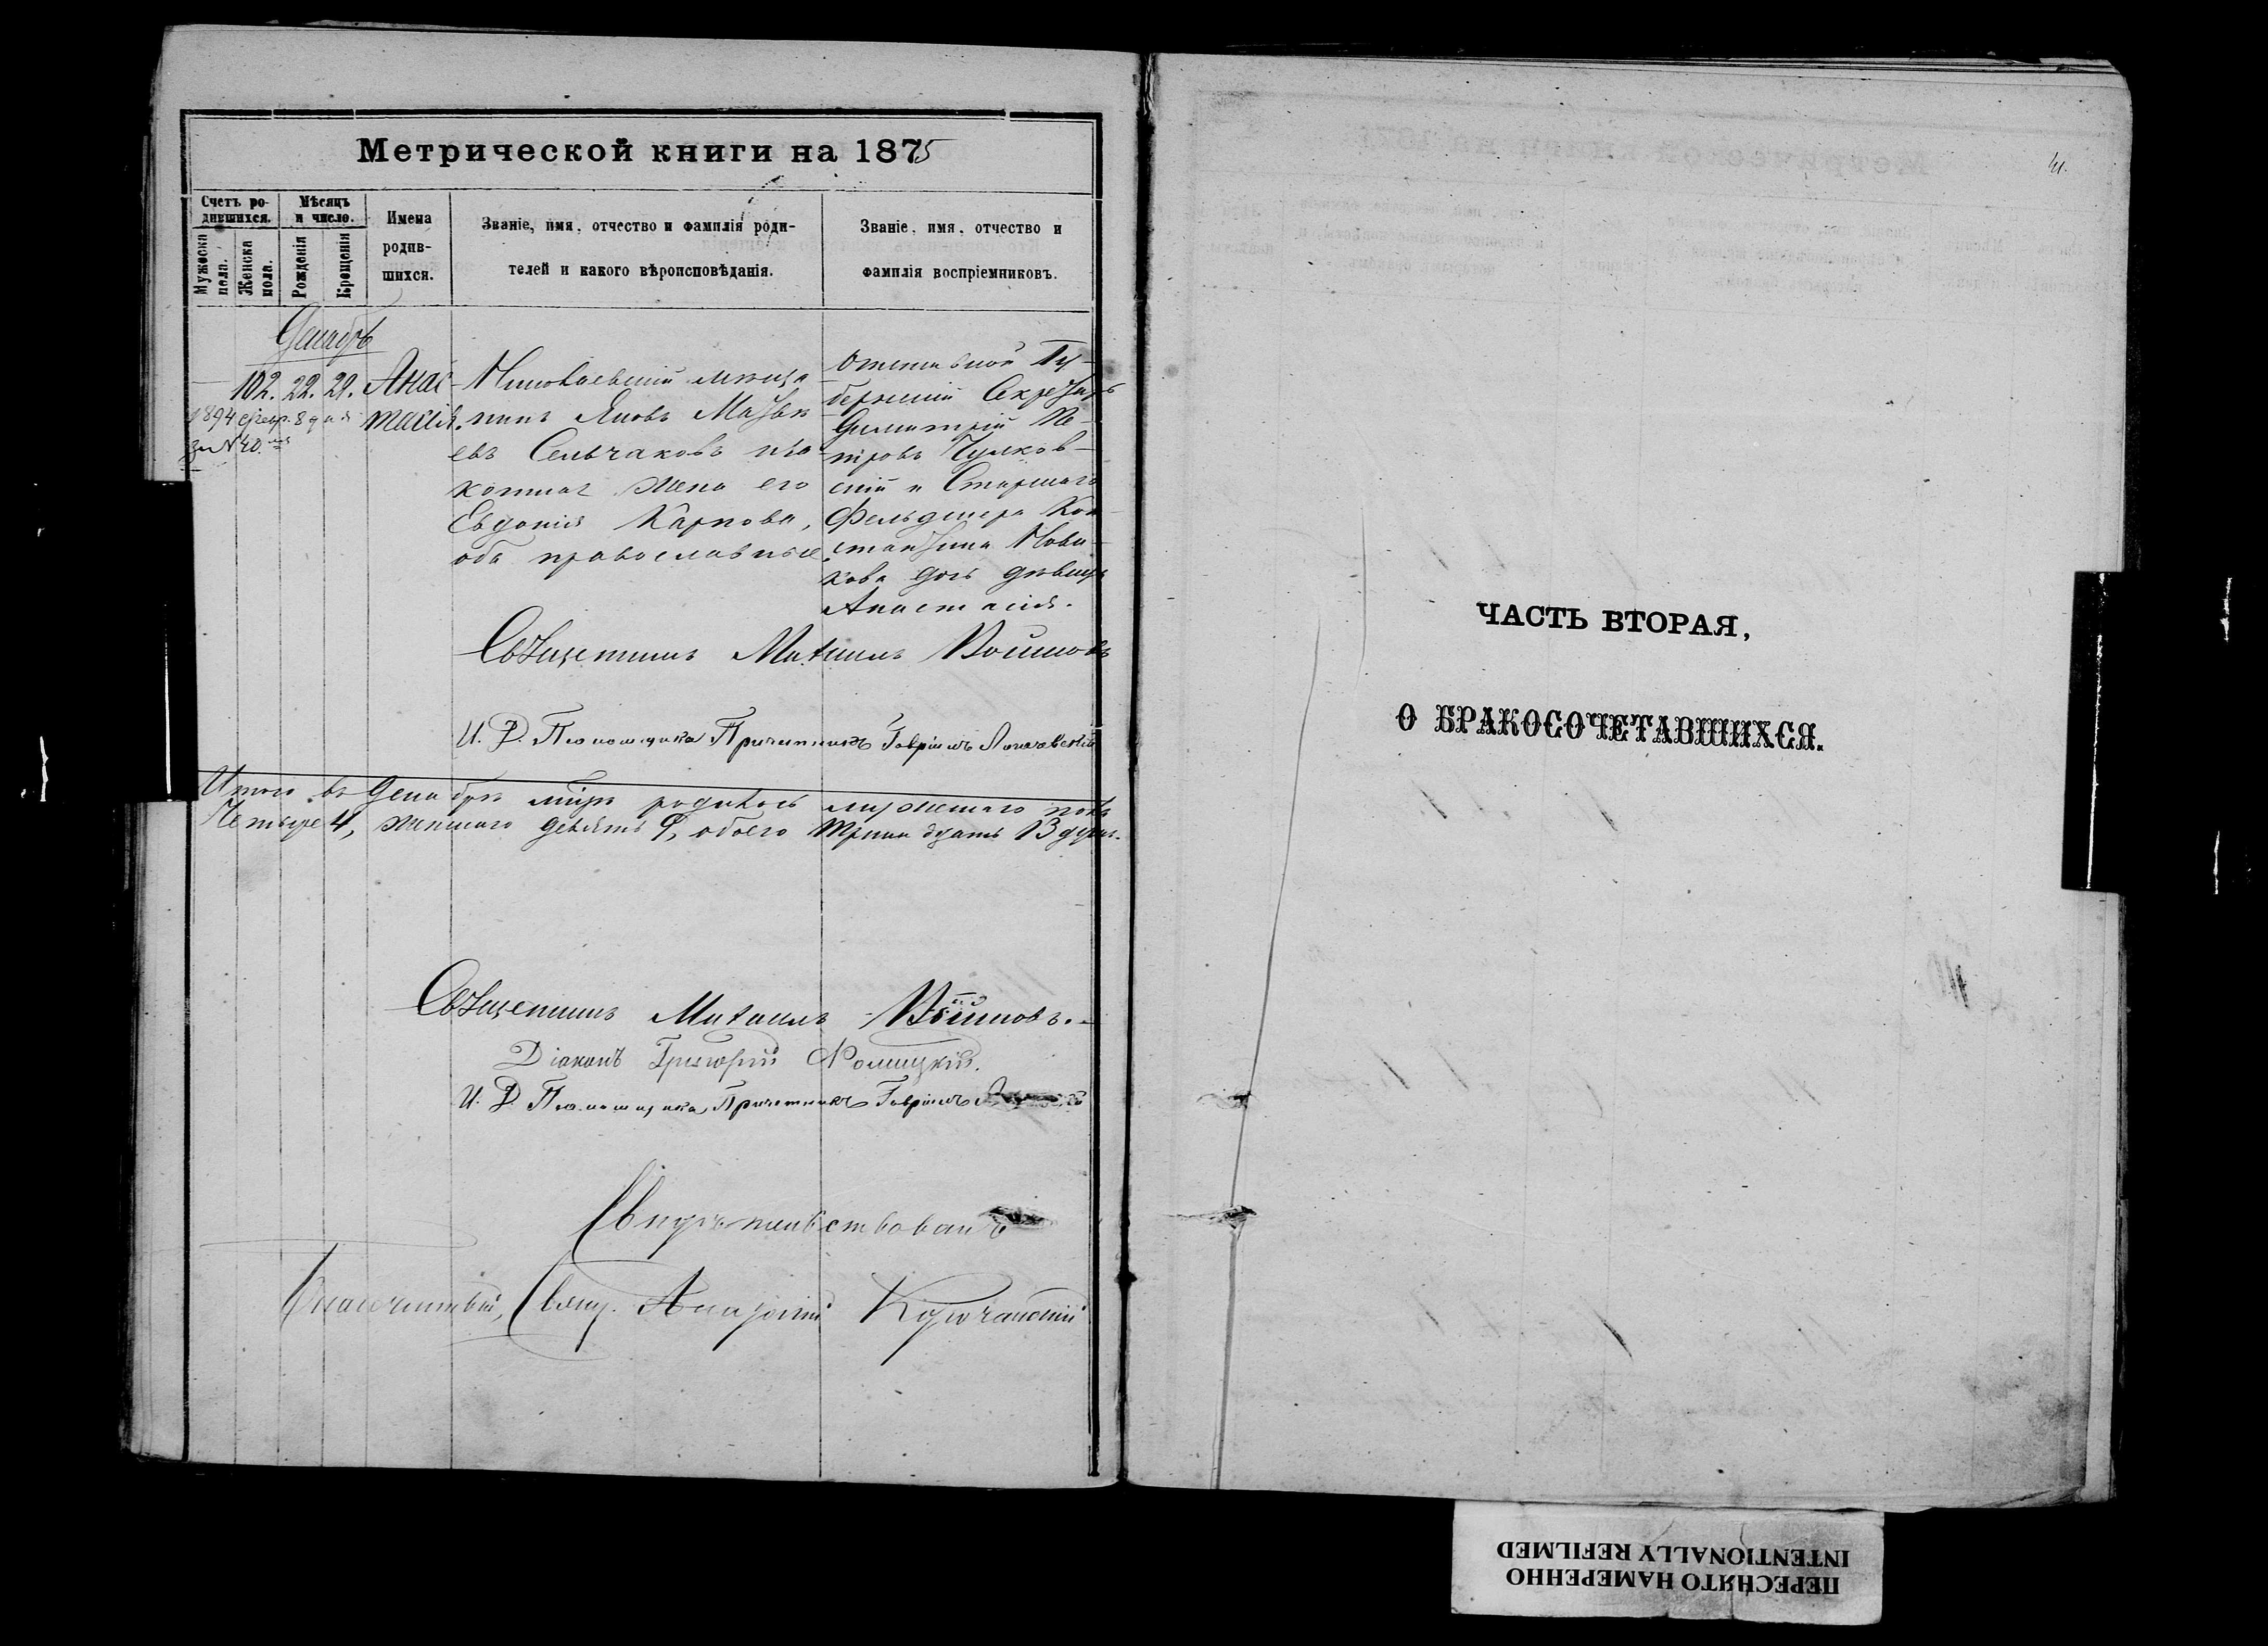 Метрической книги на 1875
Счетъ ро-
дившихся.
Мѣсяцъ
и число.
Имена
родив-
шихся.
Званіе, имя, отчество и фамилія роди-
телей и какого вѣроисповѣданія.
Званіе, имя, отчество и
фамилія воспріемниковъ.
Мужеска
пола.
Женска
пола.
Рожденія
Крещенія
Декабрь
102. 22. 29. Анас-
тасія.
1894 февр. 8 дня
за № 40.
Николаевскій мѣща-
нинъ Яковъ
евъ Сельчаковъ
жена его
Евдокія Карпова,
оба православные
Отставной Гу-
бернскій Секретарь
Димитрій Пе-
тровъ Чулков-
скій и Старшаго
Фельдшера Кон-
стантина Нови-
кова дочь дѣвица
Анастасія.
Священникъ Михаилъ Войновъ
И. Д. Псаломщика Причетникъ Гавріилъ
Итого въ Декабрѣ мцѣ родилось мужескаго пола
Четыре 4, женскаго девять 9, обоего тринадцать 13 душъ.
Священникъ Михаилъ Войновъ.
Діаконъ Григорій
И. Д. Псаломщика Причетникъ Гавріилъ
Свидѣтельствовалъ
Благочинный, Свящ. Корочанскій
41.
ЧАСТЬ ВТОРАЯ,
О БРАКОСОЧЕТАВШИХСЯ.
ПЕРЕСНЯТО НАМЕРЕННО
INTENTIONALLY REFILMED